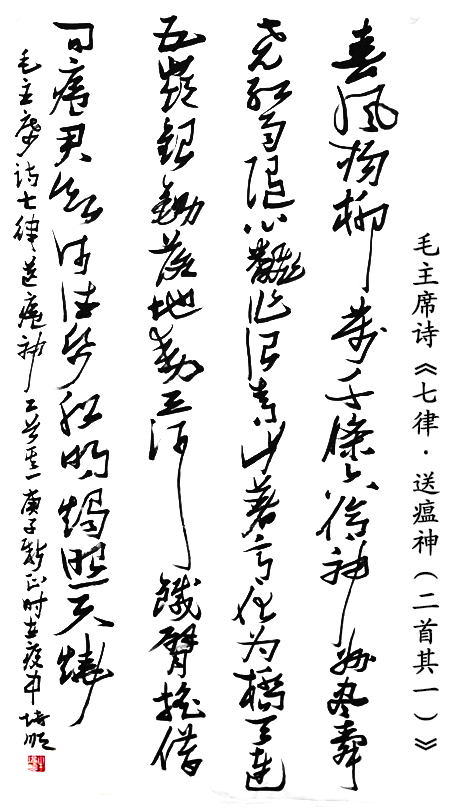 毛主席诗《七律·送瘟神(二首其一)》
春风杨柳万千条六亿神州尽舜
尧红雨随心翻作浪青山著意化为桥天连
五岭银锄落地动三河铁臂摇借
问瘟君欲何往纸船明烛照天烧
毛主席诗七律送瘟神二首其一庚子新正时在疫中